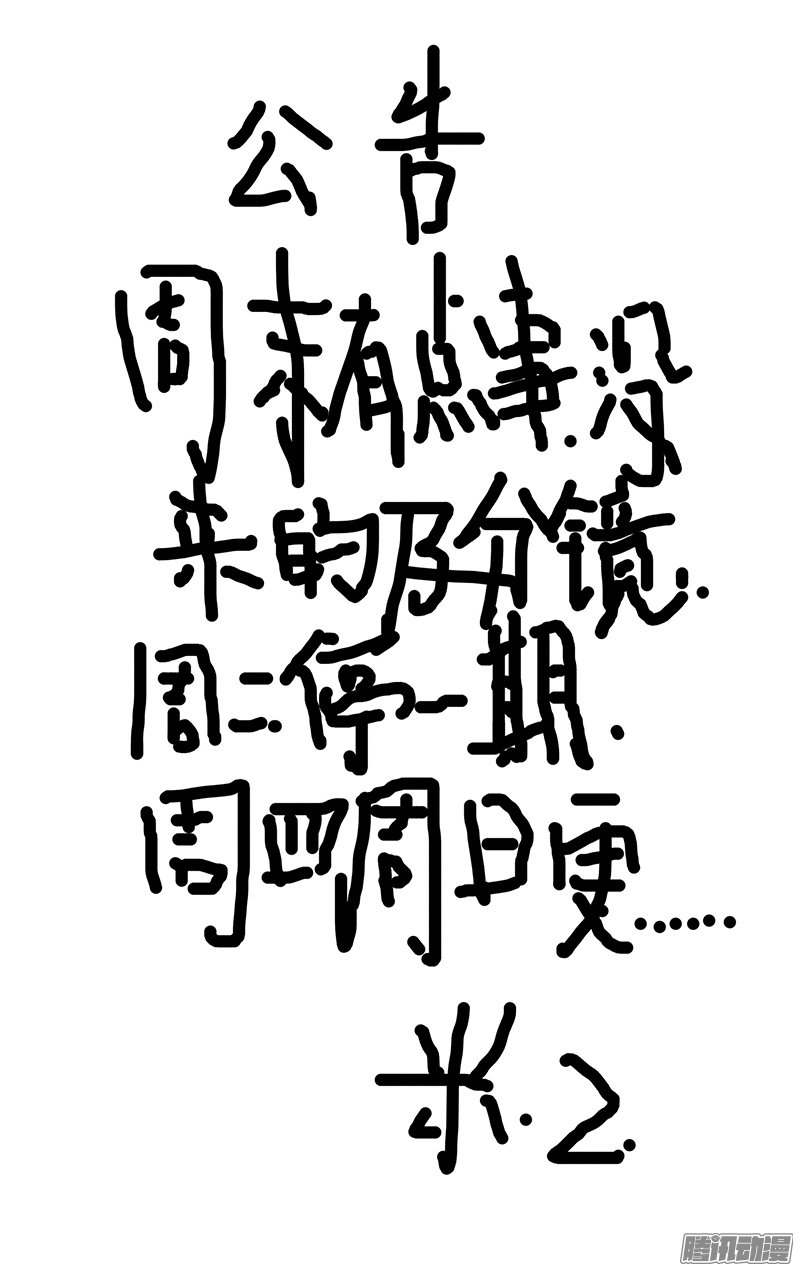 公告
周末有点事.没
来的及分镜.
周二.停一期.
周四周日更......
米.2.
腾讯动漫